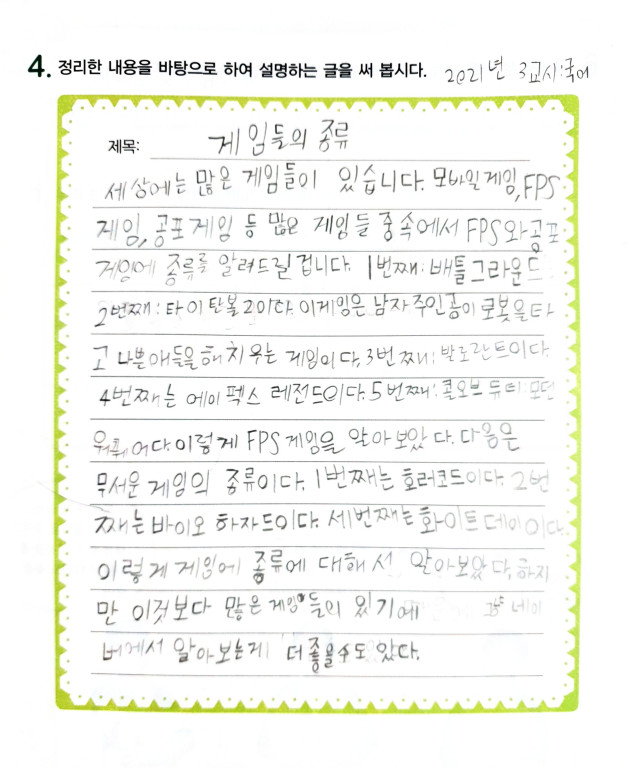 4. 정리한 내용을 바탕으로 하여 설명하는 글을 써 봅시다. 2021년 3교시:국어
제목: 게임들의 종류
세상에는 많은 게임들이 있습니다. 모바일게임, FPS
게임, 공포게임 등 많은 게임들 중속에서 FPS와 공포
게임에 종류를 알려드릴겁니다. 1번째: 배틀그라운드
2번째: 타이탄폴2이다. 이게임은 남자주인공이 로봇을타
고 나쁜애들을해치우는 게임이다, 3번째: 발로란트이다.
4번째는 에이펙스 레전드이다. 5번째: 콜오브 듀티: 모던
워훼어다. 이렇게 FPS게임을 알아보았다. 다음은
무서운 게임의 종류이다. 1번째는 호러코드이다. 2번
째는 바이오 하자드이다. 세번째는 화이트데이이다.
이렇게 게임에 종류에 대해서 알아보았다, 하지
만 이것보다 많은 게임들이 있기에 걍 네이
버에서 알아보는게 더 좋을수도 있다.